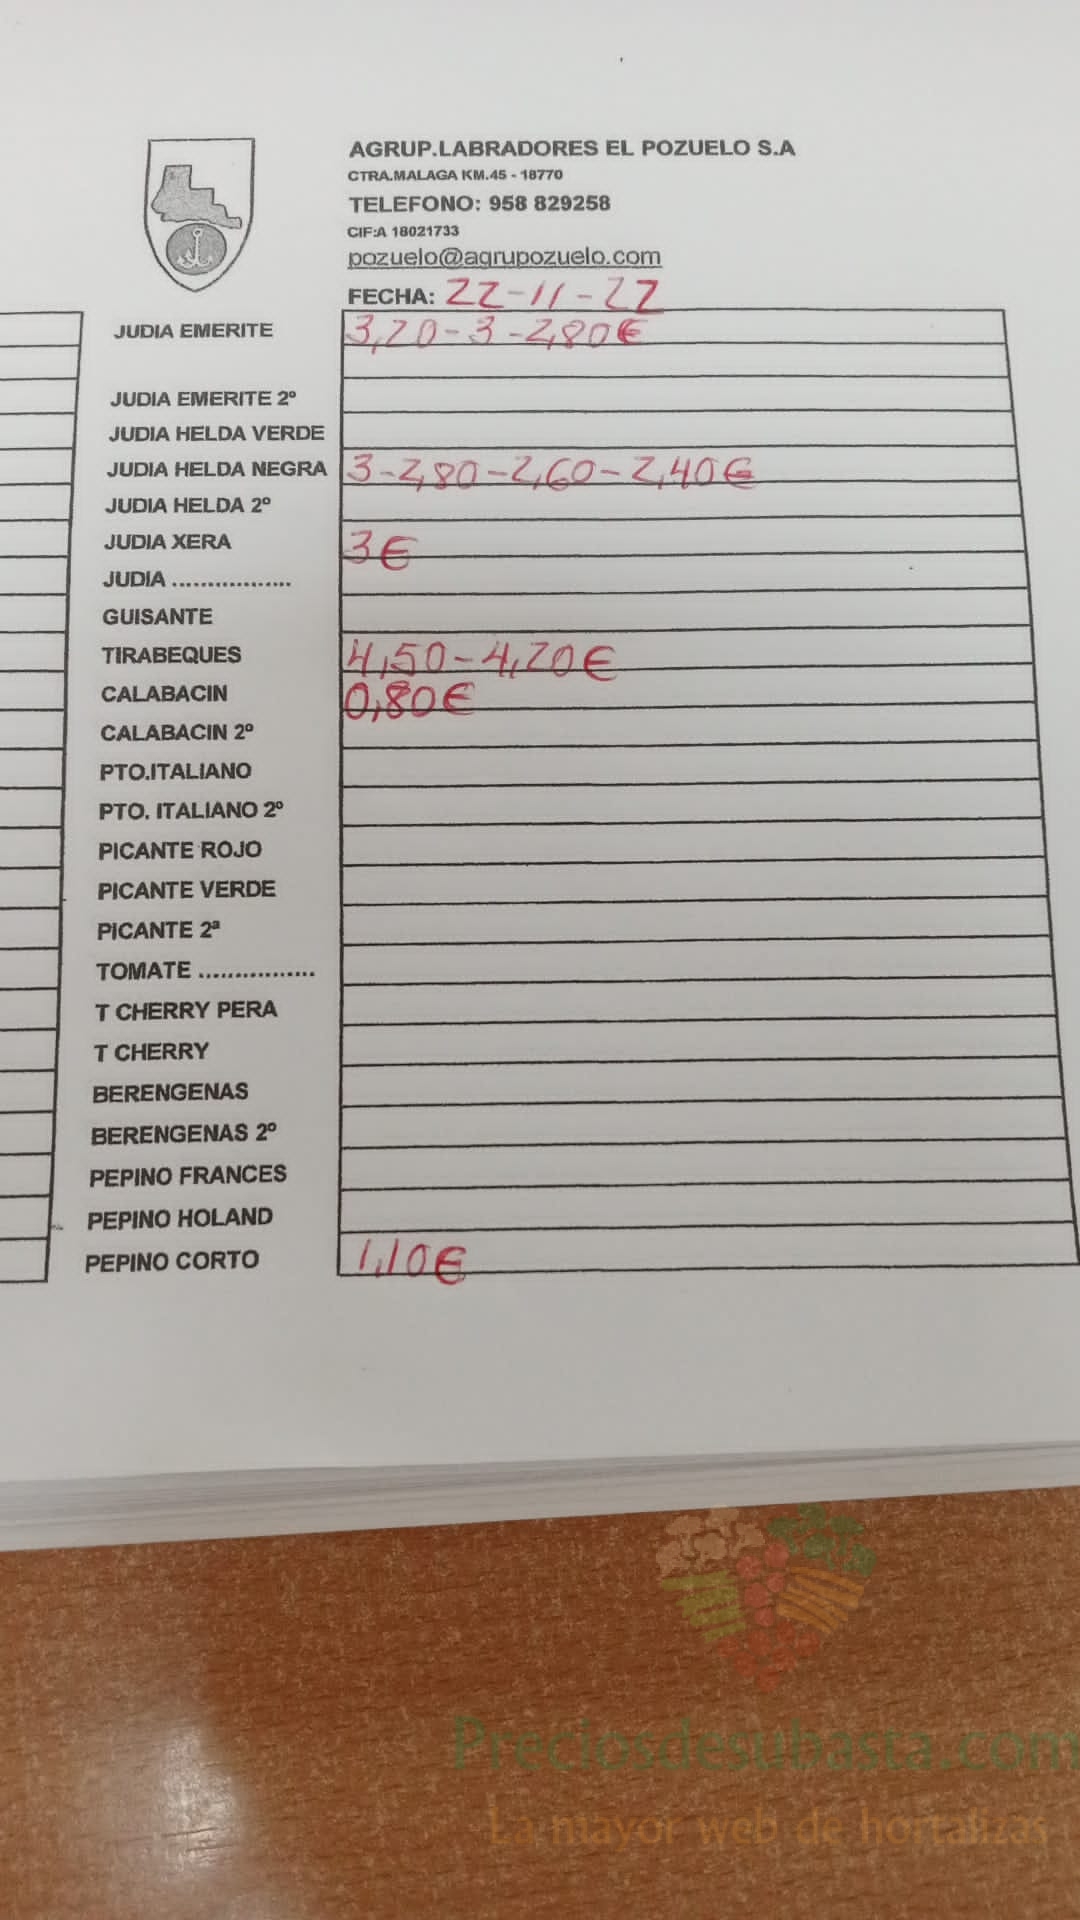 AGRUP.LABRADORES EL POZUELO S.A
CTRA.MALAGA KM.45 - 18770
TELEFONO: 958 829258
CIF:A 18021733
pozuelo@agrupozuelo.com
FECHA: 22-11-22
JUDIA EMERITE 3,20-3-2,80€
JUDIA EMERITE 2º
JUDIA HELDA VERDE
JUDIA HELDA NEGRA 3-2,80-2,60-2,40€
JUDIA HELDA 2º
JUDIA XERA 3€
JUDIA .................
GUISANTE
TIRABEQUES 4,50-4,20€
CALABACIN 0,80€
CALABACIN 2º
PTO.ITALIANO
PTO. ITALIANO 2º
PICANTE ROJO
PICANTE VERDE
PICANTE 2ª
TOMATE ................
T CHERRY PERA
T CHERRY
BERENGENAS
BERENGENAS 2º
PEPINO FRANCES
PEPINO HOLAND
PEPINO CORTO 1,10€
Preciosdesubasta.com
La mayor web de hortalizas